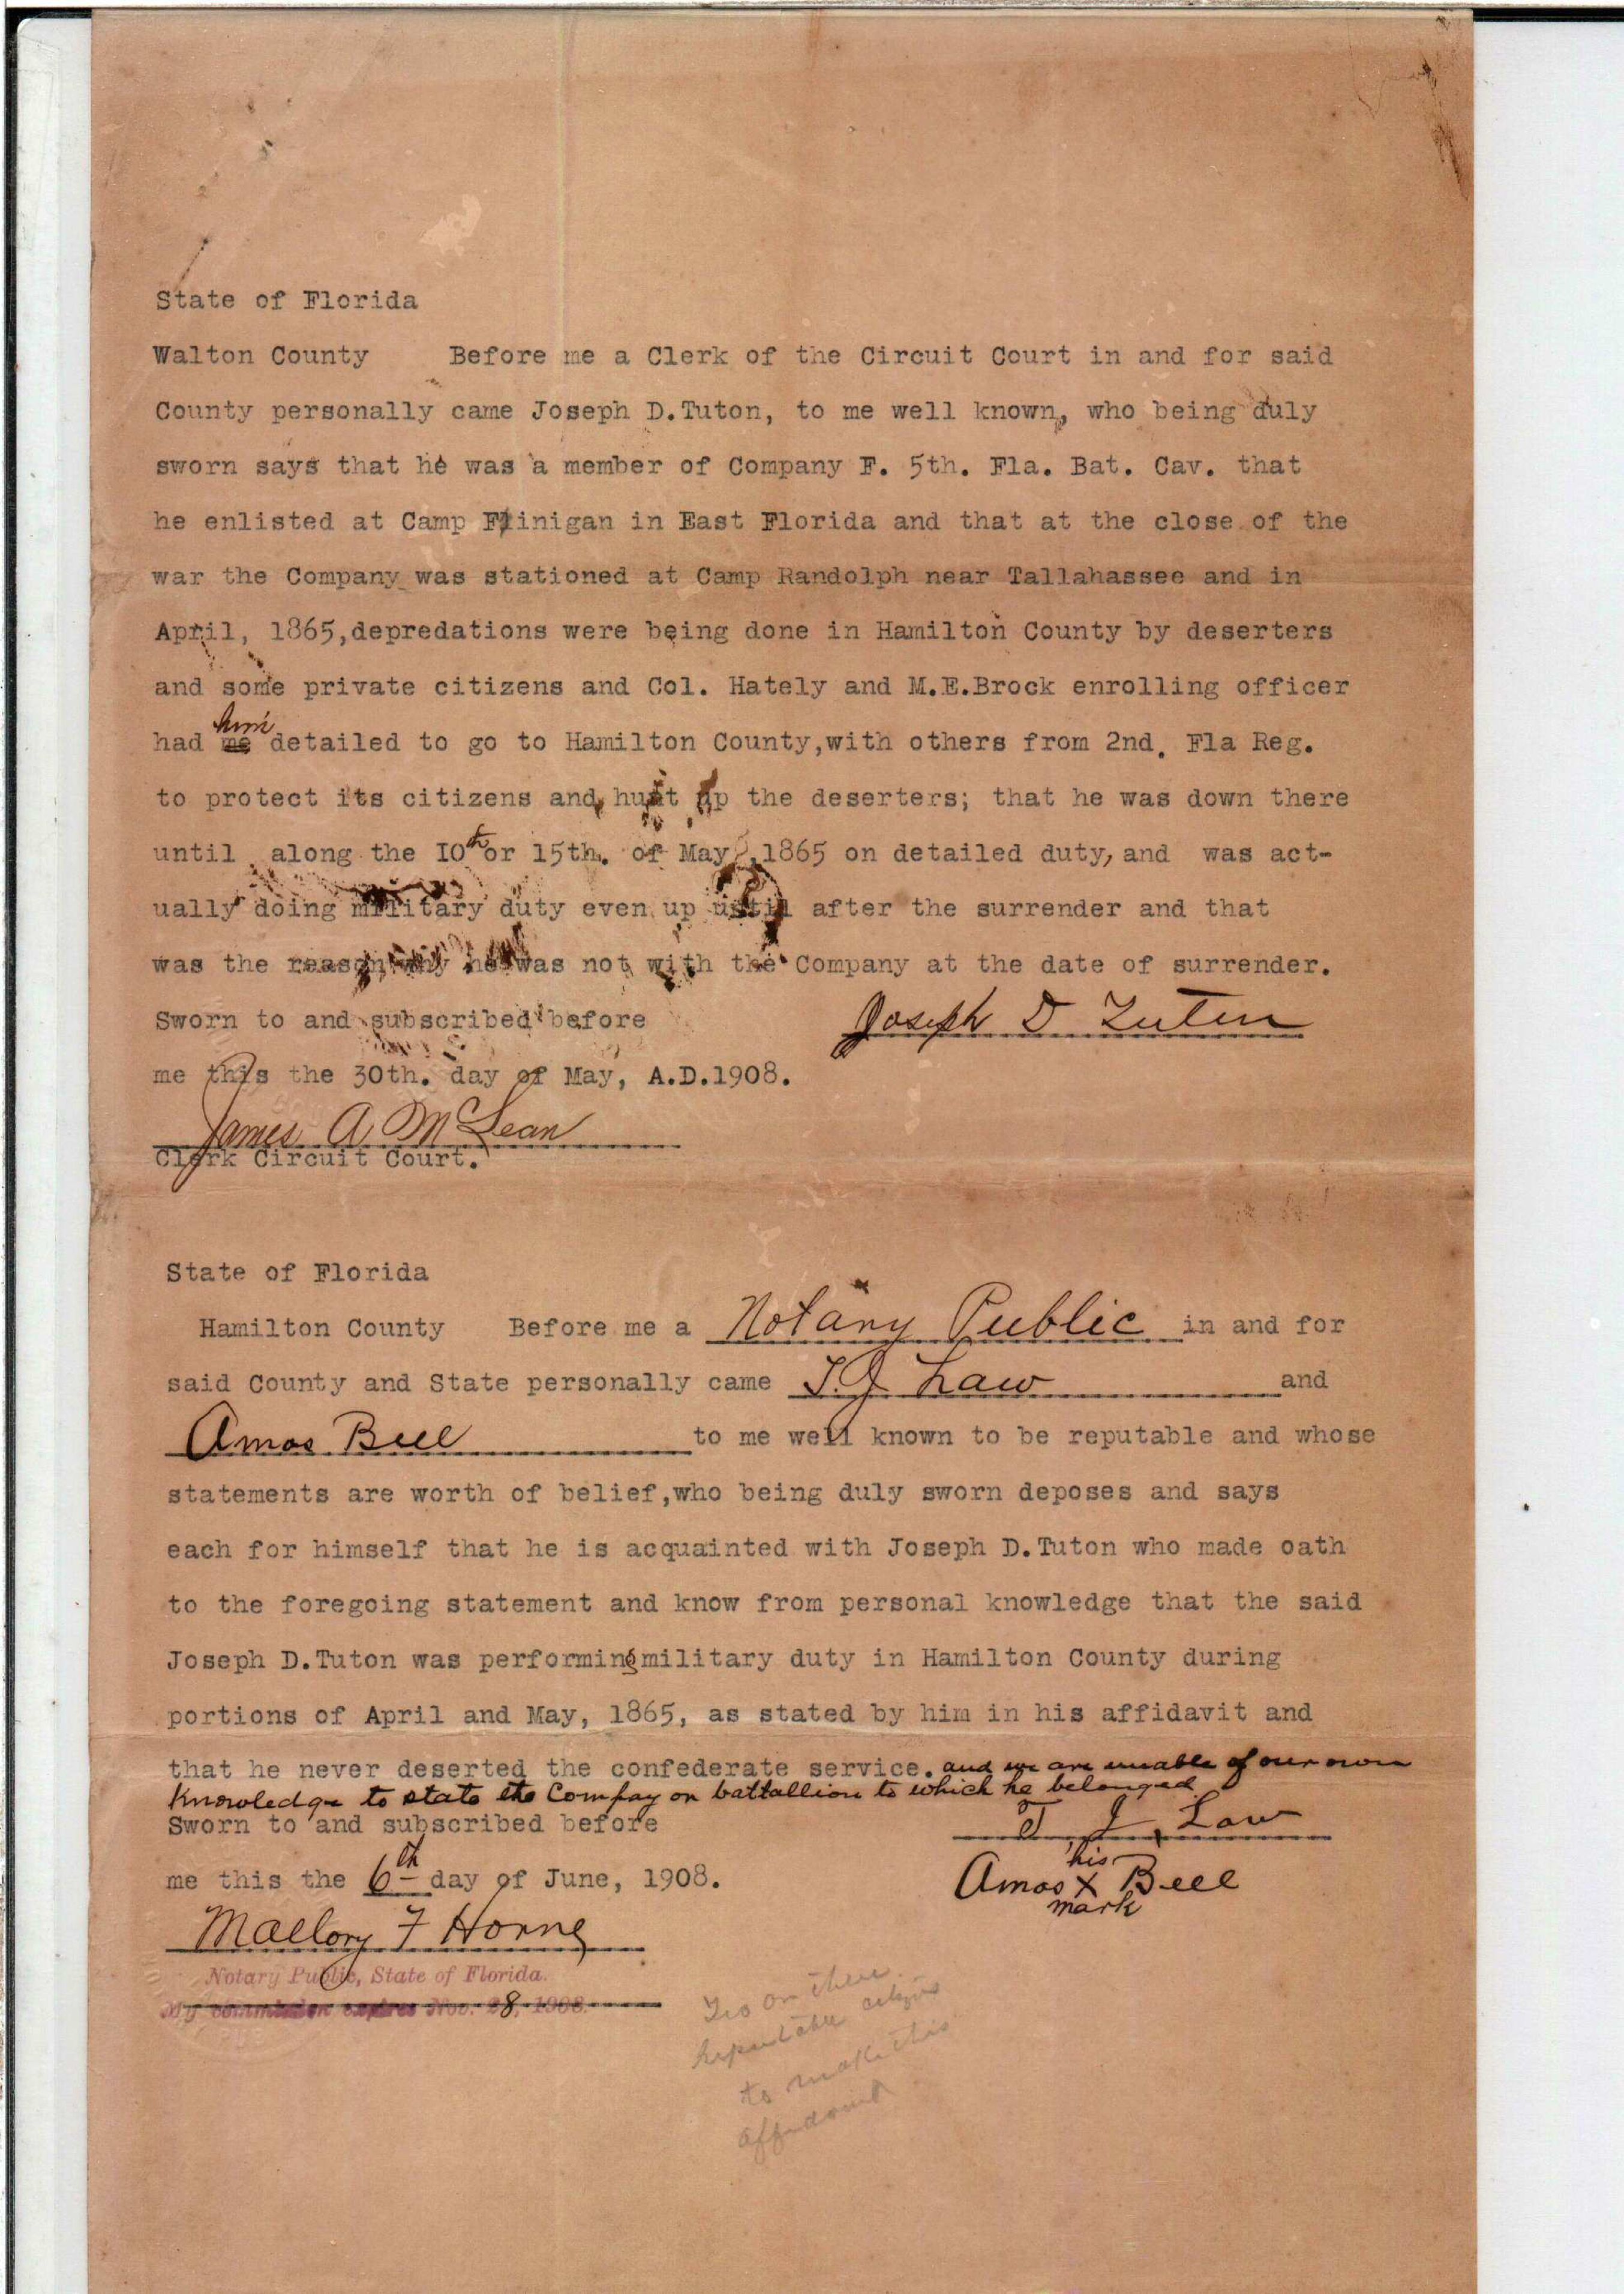 State of Florida
Walton County Before me a Clerk of the Circuit Court in and for said
County personally came Joseph D.Tuton, to me well known, who being duly
sworn says that he was a member of Company F. 5th. Fla. Bat. Cav. that
he enlisted at Camp Finigan in East Florida and that at the close of the
war the Company was stationed at Camp Randolph near Tallahassee and in
April, 1865,depredations were being done in Hamilton County by deserters
and some private citizens and Col. Hately and M.E.Brock enrolling officer
had me him detailed to go to Hamilton County,with others from 2nd. Fla Reg.
to protect its citizens and hunt up the deserters; that he was down there
until along the 10th or 15th. of May,1865 on detailed duty, and was act-
ually doing military duty even up until after the surrender and that
was the reason why he was not with the Company at the date of surrender.
Sworn to and subscribed before Joseph D Tuten
me this the 30th. day of May, A.D.1908.
James A McLean
Clerk Circuit Court.
State of Florida
Hamilton County Before me a Notary Public in and for
said County and State personally came T.J Law and
Amos Bell to me well known to be reputable and whose
statements are worth of belief,who being duly sworn deposes and says
each for himself that he is acquainted with Joseph D.Tuton who made oath
to the foregoing statement and know from personal knowledge that the said
Joseph D.Tuton was performing military duty in Hamilton County during
portions of April and May, 1865, as stated by him in his affidavit and
that he never deserted the confederate service. and we are unable of our own
Knowledge to state the Compay or battallion to which he belonged
Sworn to and subscribed before T J Law
me this the 6th day of June, 1908.
his
Amos X Bell
mark
Mallory F Horne
Notary Public, State of Florida.
My commission expires Nov. 28, 1908.
to make this